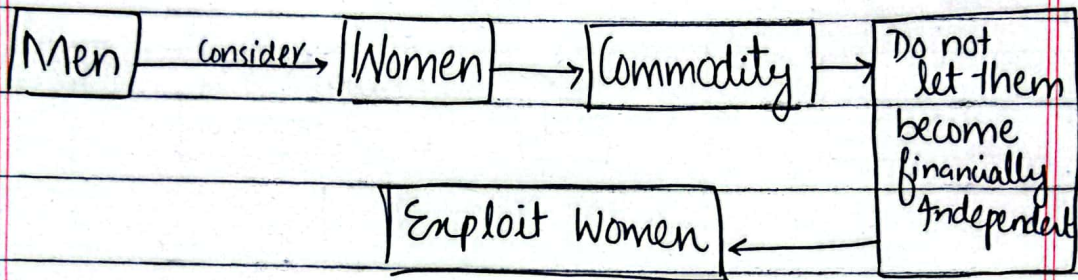 Men consider Women Commodity Do not
let them
become
financially
Independent
Exploit Women